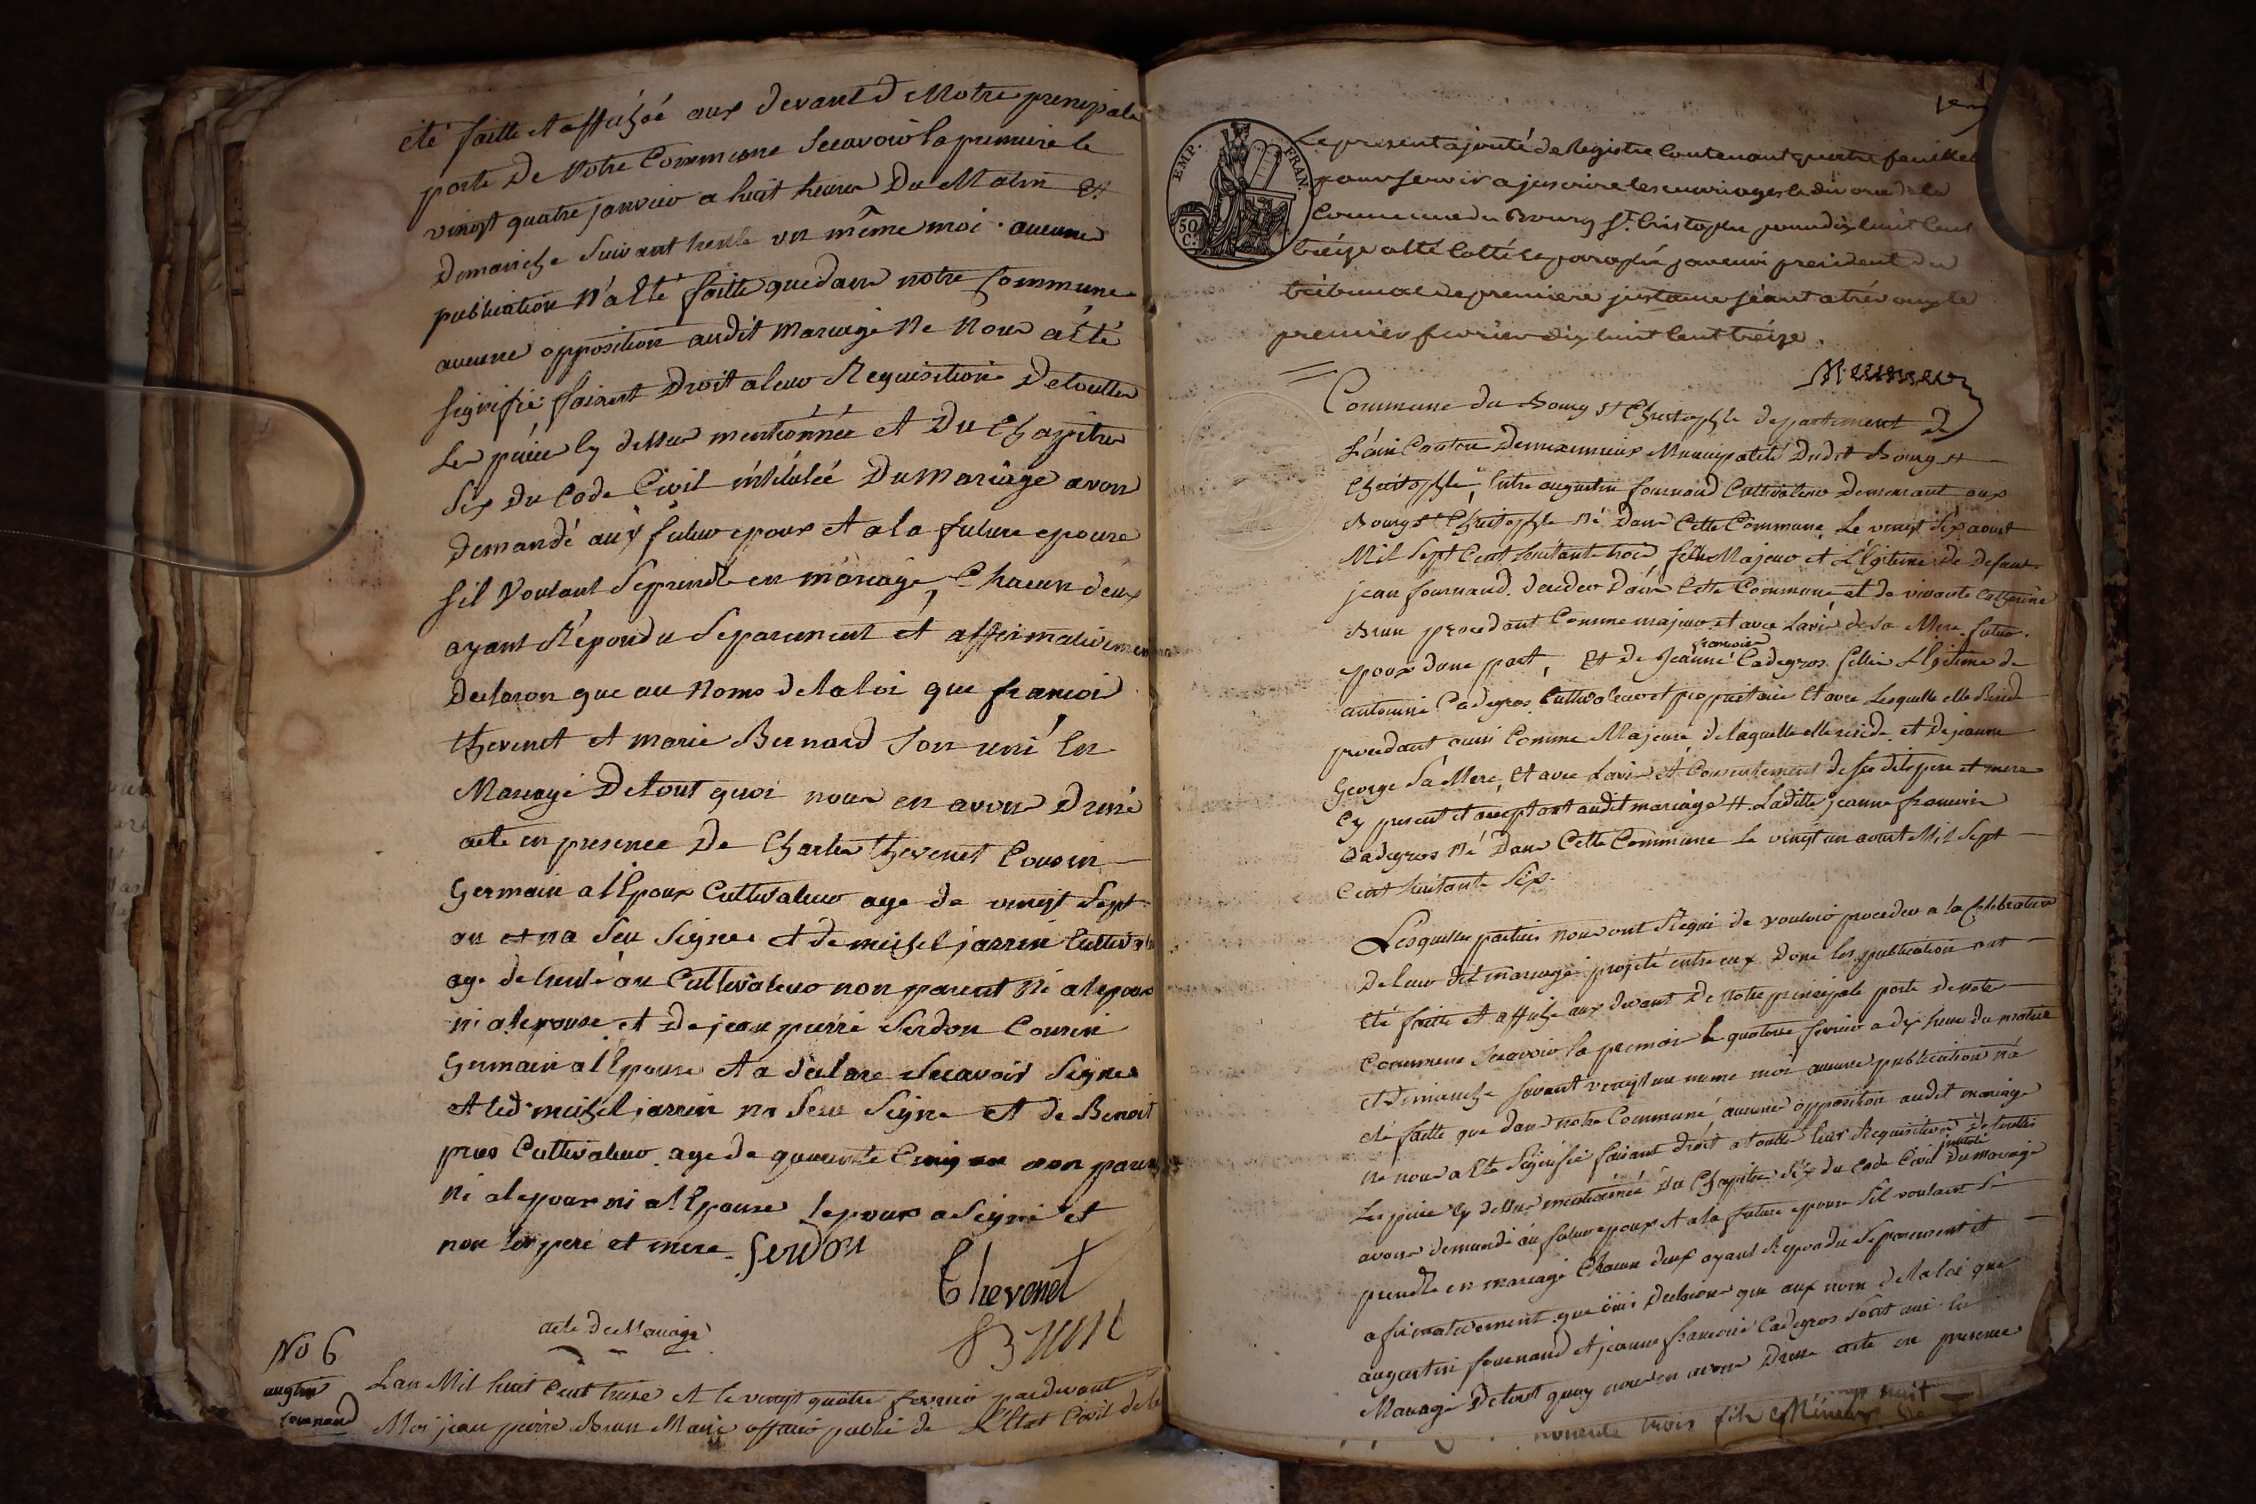 été faitte et affichée aux devant de Notre principale
porte de Notre Commune Secavoir la premiere le
vingt quatre janvier a huit heure Du Matin et
Demanche Suivant trente un même moi aucune
publication N'a été faitte que dans notre Commune
aucune opposition audit Mariage Ne Nous a été
Signifié faisant Droit a leur Requisition De toutte
Les piéce cy dessus mentionnée et Du Chapitre
Six Du Code Civil intitulée Du Mariage avon
Demandé aux futur epoux et a la future epouse
Sil Voulant Se prendre en mariage, Chacun deux
ayant Répondu Separement et affirmativement
Declaron que au Noms de la loi que francoi
thevenet et marie Bernard Son uni en
Mariage De tout quoi nous en avon Dressé
acte en presence De Charle thevenet Cousin
Germain a l'Epoux Cultivateur age de vingt Sept
an et na Seu Signer et de michel jassin Cultivateur
age de trente an Cultivateur non parent Ni a lepoux
ni a lepouse et De jean pierre Serdon Cousin
Germain a l'Epouse et a declare Secavoir Signer
et led michel jassin na Seu Signe et de Benoit
pras Cultivateur age de quarente Cinq an non parent
Ni a lepoux ni a l'Epouse Lepoux a Signé et
non les peré et mere Serdon
Thevenet
Brun
acte De Mariage
No 6
augtin
fournand
Lan Mil huit Cent treise et le vingt quatre fevrier pardevant
Moi jean pierre Brun Maire officier public de L'Etat Civil de la
EMP. FRAN.
50 C.
Le present ajouté de Registre Contenant quatre feuillet
pour Servir a jnscrire les mariages & divorce de la
Commune du Bourg St. Cristophe pour dix huit Cent
treize a été Cotté & paraphé par moi president du
tribunal de premiere jnstance Séant a trévoux le
premier fevrier dix huit Cent treize.
Meunier
Commune du Bourg St Christophle departement de
L'ain Canton De meximieux Municipalité Dudit Bourg St
Christophle, Entre augustin fournand Cultivateur Demeurant aux
Bourg St Christophle Né Dans Cette Commune Le vingt Six aout
Mil Sept Cent huitante trois, fils Majeur et Légitime De Defunt
jean fournand decedé Dans Cette Commune et de vivante Catherine
Brun procedant Comme majeur et avec Lavis de Sa Mere futur
francoise
epoux dune part, Et de Jeanne Cadegros fille Légitime de
antoine Cadegros Cultivateur et propriétaire et avec Lesquelle elle Reside
procedant aussi Comme Majeure de laquelle elle reside et De jeanne
George Sa Mere, et avec Lavis et Consentement de Ses dits pere et mere
Cy present et acceptant audit mariage # Laditte jeanne francoise
Cadegros Né Dans Cette Commune Le vingt un aout Mil Sept
Cent huitante Six.
Lesquelle parties nous ont Requi de vouloir proceder a la Celebration
De leur dit mariage projeté entre eux Done les publication ont
été faitte et affiche aux devant De Notre principale porte De Notre
Commune Secavoir la premiere le quatorse fevrier a dix heure du matin
et Dimanche Suivant vingt un meme moi aucune publication n'a
été faitte que dans notre Commune, aucune opposition audit mariage
ne nous a été Signifié faisant droit a toutte leur Requisition De toutte
intitulé
Les piéce cy dessus mentionné Du Chapitre Six du Code Civil Du mariage
avons demandé au futur epoux et a la future epouse Sil voulant Se
prendre en mariage Chacun deux ayant Repondu Separement et
afirmativement que oui Declaron que aux nom de la loi que
augustin fournand et jeanne francoise Cadegros Sont uni en
Mariage De tout quoy nous en avon Dressé acte en presence
nonente trois fils Mineur